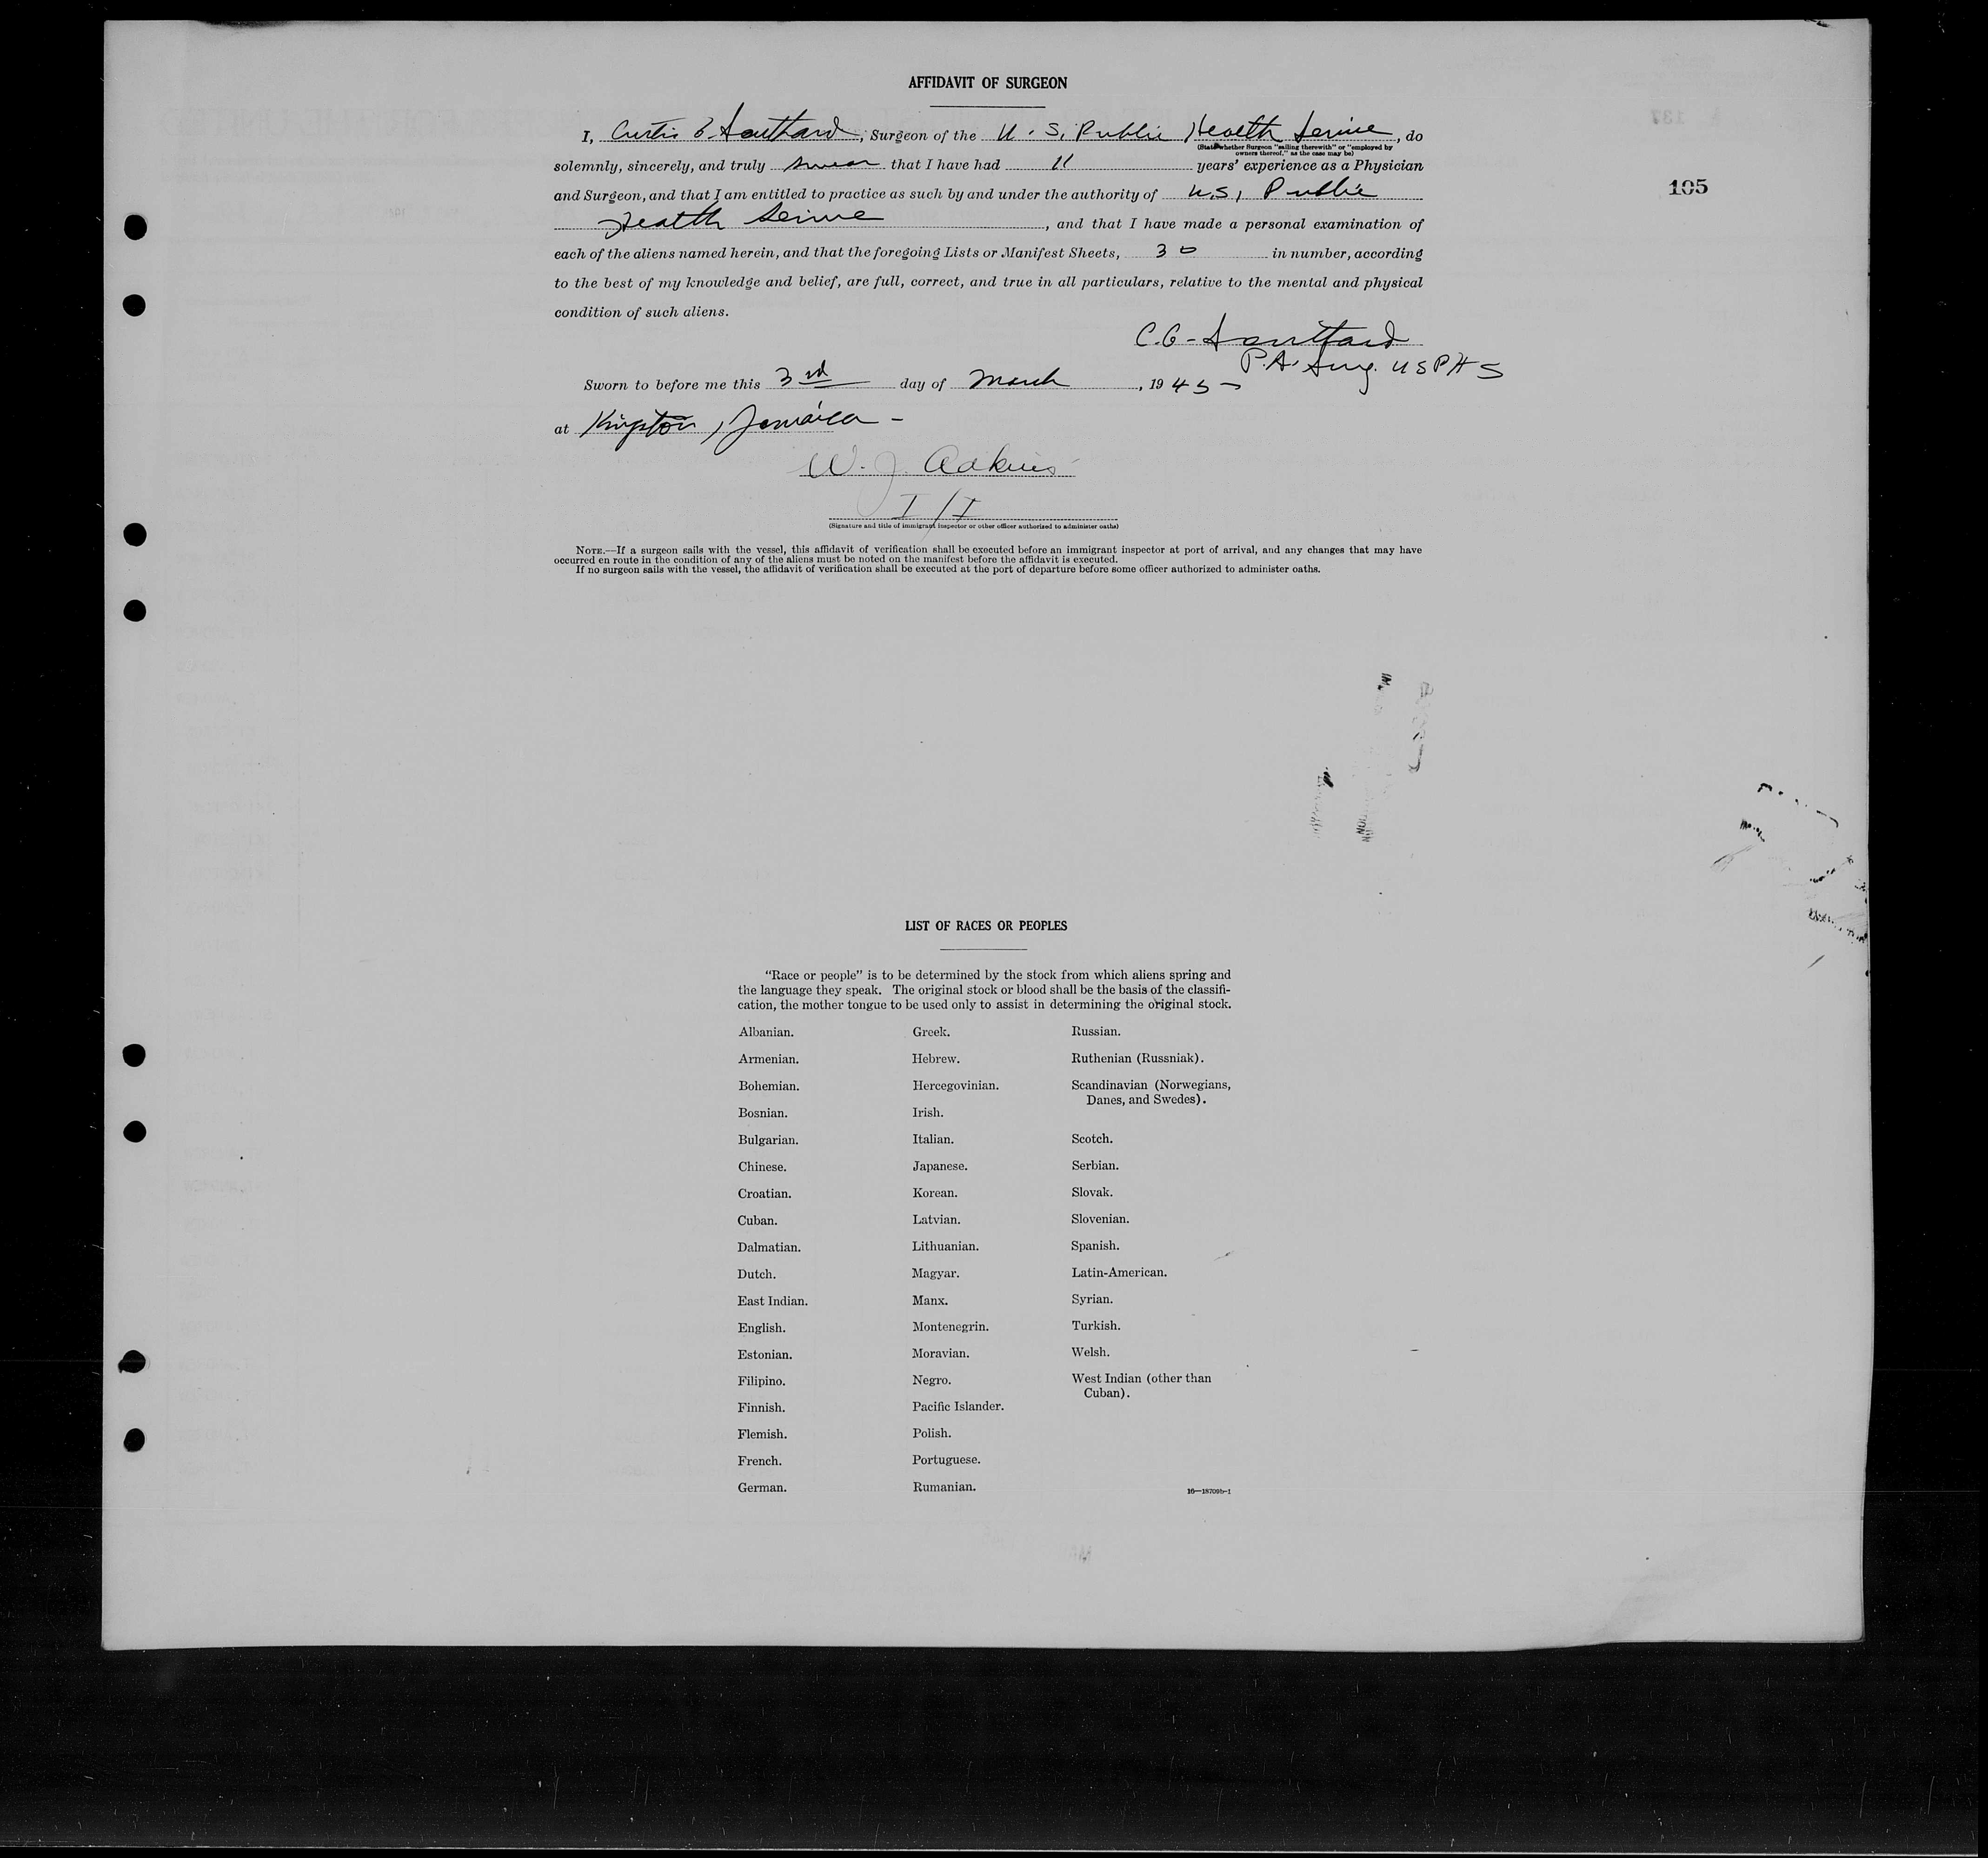 AFFIDAVIT OF SURGEON
I, Curtis G. Southard, Surgeon of the U. S. Public Health Service, do
(State whether Surgeon "sailing therewith" or "employed by
owners thereof," as the case may be)
solemnly, sincerely, and truly swear that I have had 11 years' experience as a Physician
and Surgeon, and that I am entitled to practice as such by and under the authority of U.S. Public
105
Health Service, and that I have made a personal examination of
each of the aliens named herein, and that the foregoing Lists or Manifest Sheets, 30 in number, according
to the best of my knowledge and belief, are full, correct, and true in all particulars, relative to the mental and physical
condition of such aliens.
C. G. Southard
P.A. Surg. USPHS
Sworn to before me this 3rd day of March, 1945
at Kingston, Jamaica -
W. J. Adkins
I/I
(Signature and title of immigrant inspector or other officer authorized to administer oaths)
NOTE.—If a surgeon sails with the vessel, this affidavit of verification shall be executed before an immigrant inspector at port of arrival, and any changes that may have
occurred en route in the condition of any of the aliens must be noted on the manifest before the affidavit is executed.
If no surgeon sails with the vessel, the affidavit of verification shall be executed at the port of departure before some officer authorized to administer oaths.
LIST OF RACES OR PEOPLES
"Race or people" is to be determined by the stock from which aliens spring and
the language they speak. The original stock or blood shall be the basis of the classifi-
cation, the mother tongue to be used only to assist in determining the original stock.
Albanian.
Armenian.
Bohemian.
Bosnian.
Bulgarian.
Chinese.
Croatian.
Cuban.
Dalmatian.
Dutch.
East Indian.
English.
Estonian.
Filipino.
Finnish.
Flemish.
French.
German.
Greek.
Hebrew.
Hercegovinian.
Irish.
Italian.
Japanese.
Korean.
Latvian.
Lithuanian.
Magyar.
Manx.
Montenegrin.
Moravian.
Negro.
Pacific Islander.
Polish.
Portuguese.
Rumanian.
Russian.
Ruthenian (Russniak).
Scandinavian (Norwegians,
Danes, and Swedes).
Scotch.
Serbian.
Slovak.
Slovenian.
Spanish.
Latin-American.
Syrian.
Turkish.
Welsh.
West Indian (other than
Cuban).
16—18709b-1